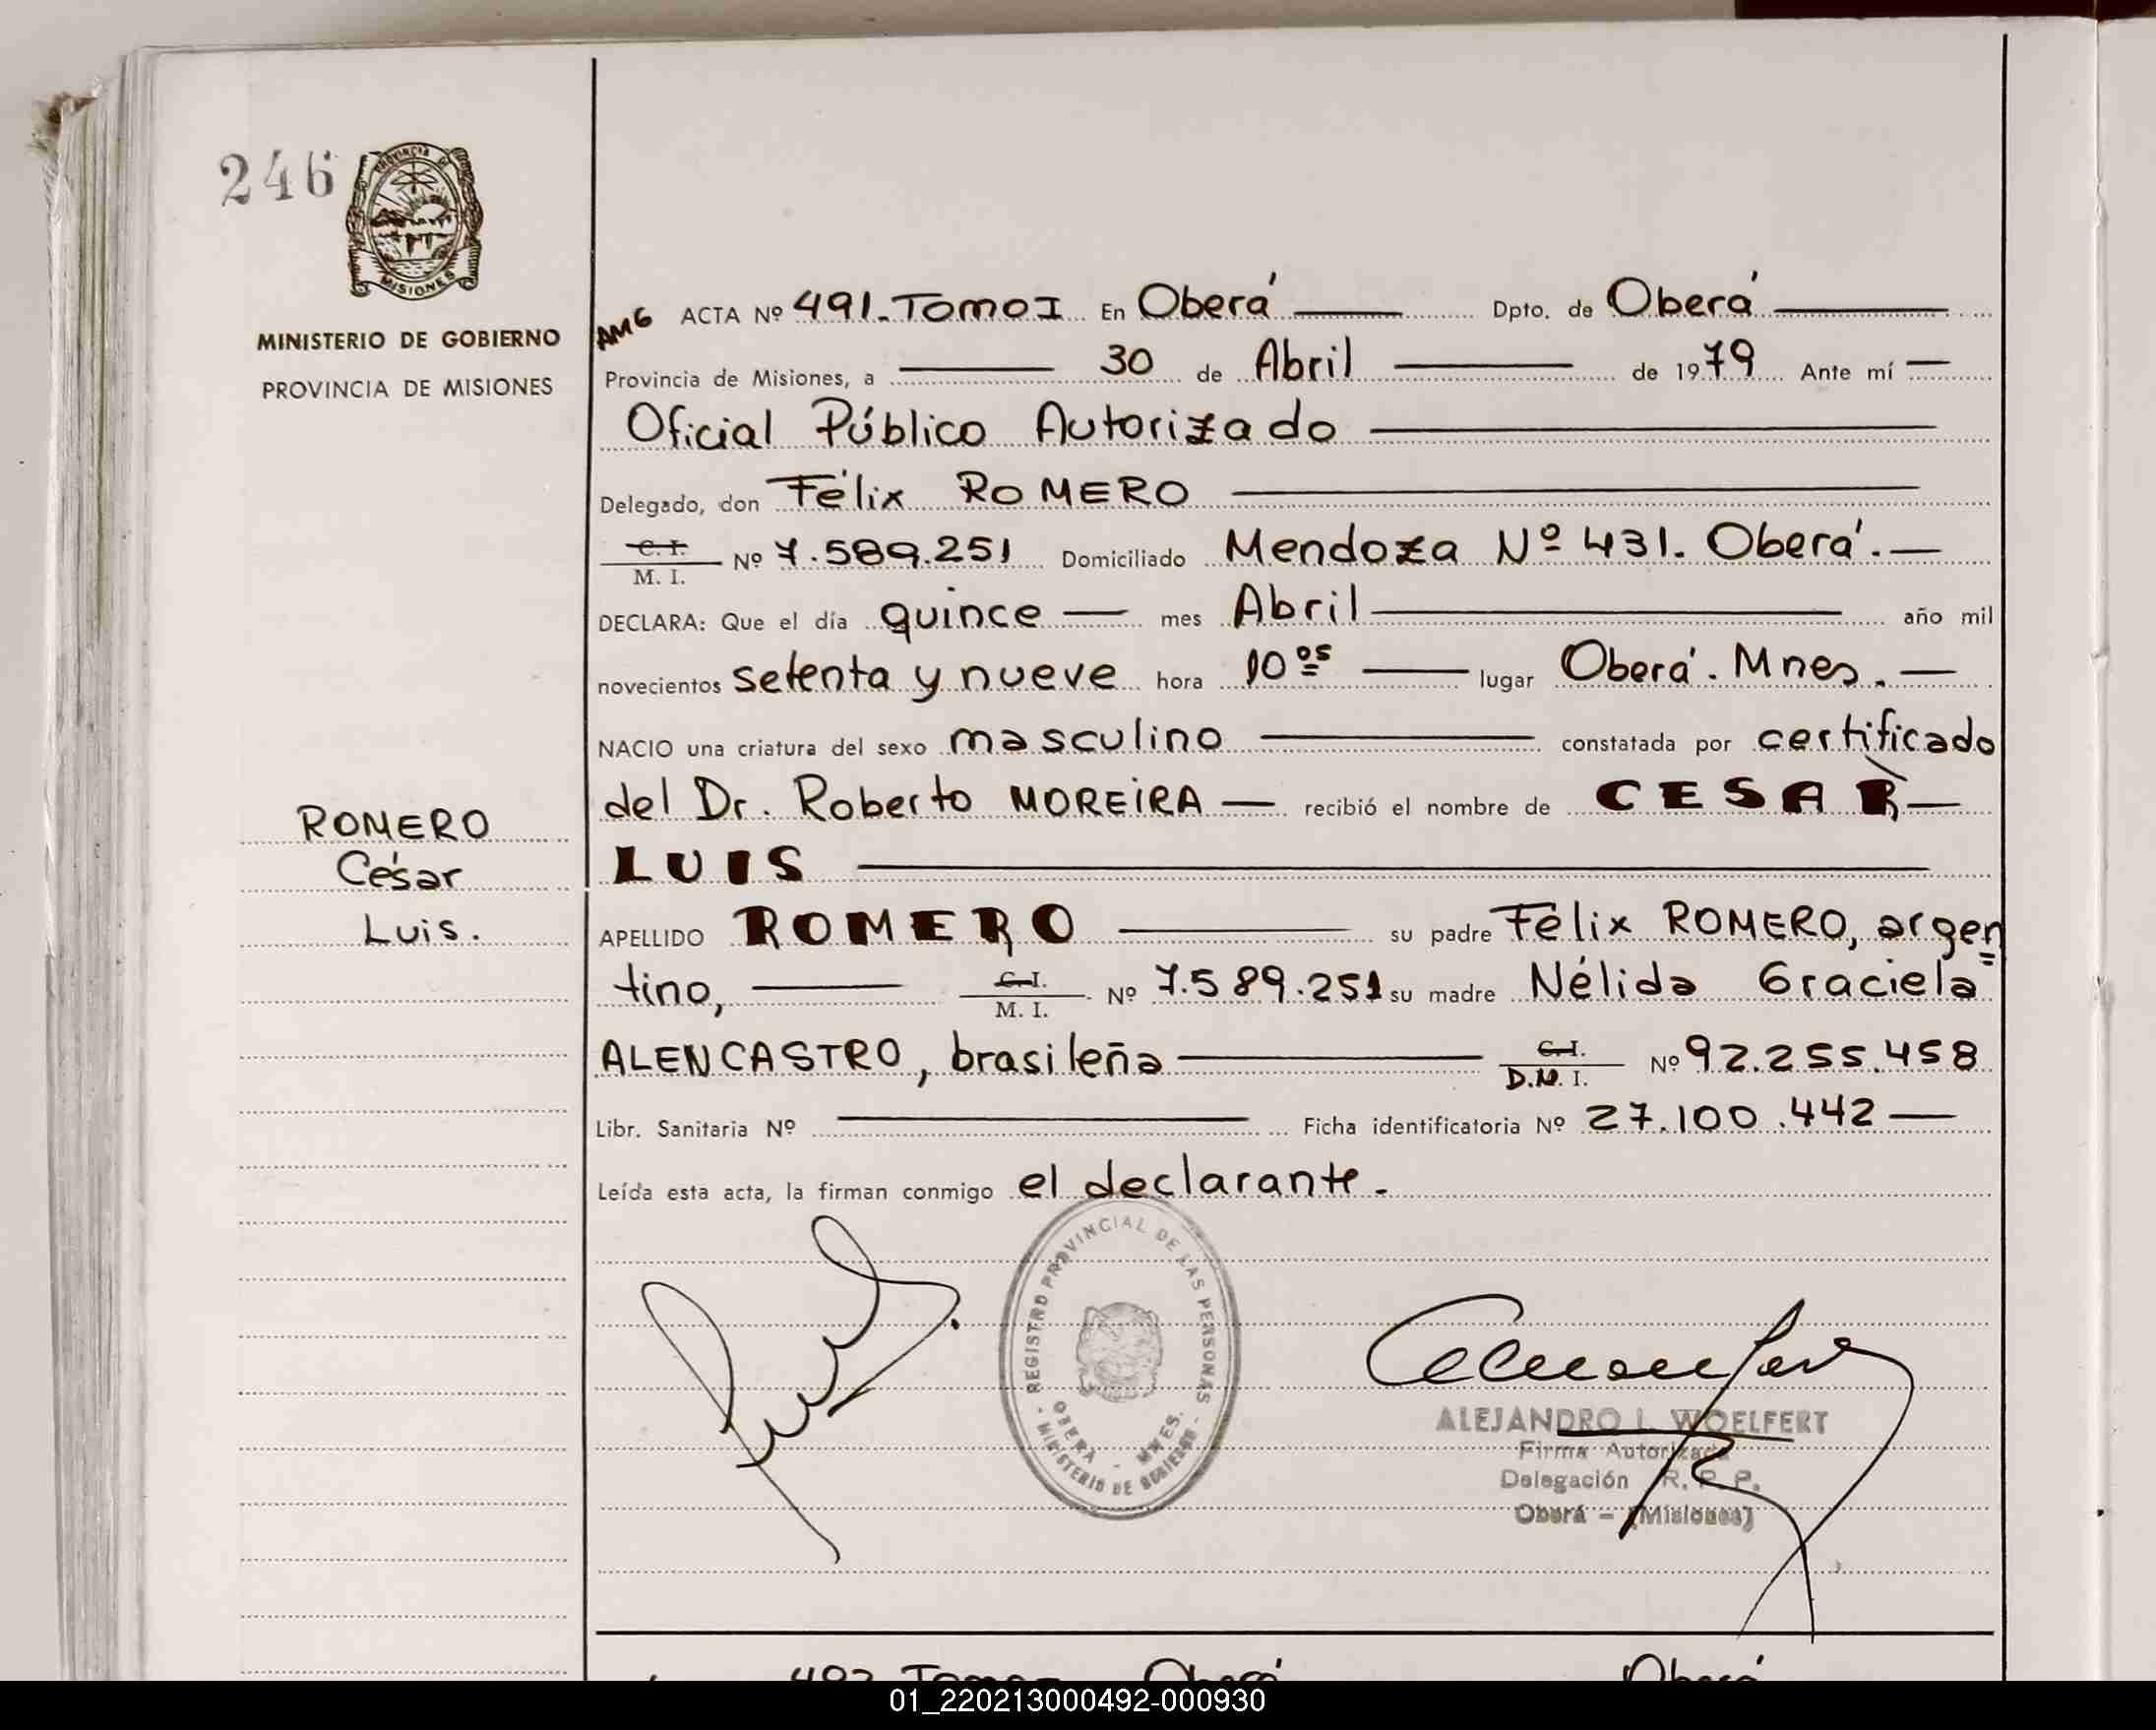 246
PROVINCIA DE
MISIONES
MINISTERIO DE GOBIERNO
PROVINCIA DE MISIONES
ROMERO
César
Luis.
AMG ACTA Nº 491. Tomo I En Oberá Dpto. de Oberá
Provincia de Misiones, a 30 de Abril de 1979 Ante mí
Oficial Público Autorizado
Delegado, don Félix ROMERO
C. I. / M. I. Nº 7.589.251 Domiciliado Mendoza Nº 431. Oberá.
DECLARA: Que el día quince mes Abril año mil
novecientos setenta y nueve hora 10 os lugar Oberá. Mnes.
NACIO una criatura del sexo masculino constatada por certificado
del Dr. Roberto MOREIRA recibió el nombre de CESAR
LUIS
APELLIDO ROMERO su padre Félix ROMERO, argen=
tino, C. I. / M. I. Nº 7.589.251 su madre Nélida Graciela
ALENCASTRO, brasileña C. I. / D.N. I. Nº 92.255.458
Libr. Sanitaria Nº Ficha identificatoria Nº 27.100.442
Leída esta acta, la firman conmigo el declarante.
REGISTRO PROVINCIAL DE LAS PERSONAS
OBERA - MNES.
- MINISTERIO DE GOBIERNO -
ALEJANDRO L. WOELFERT
Firma Autorizada
Delegación R. P. P.
Oberá - (Misiones)
492 Tomo Oberá Oberá
01_220213000492-000930